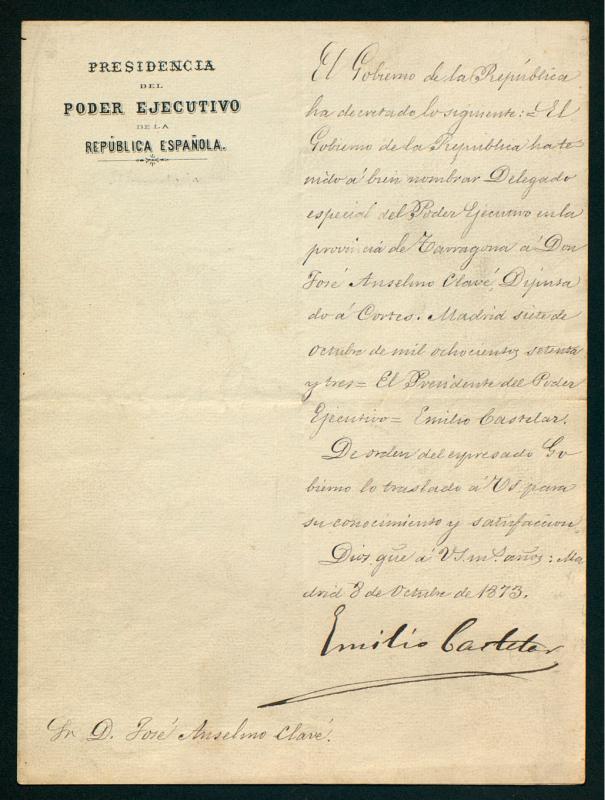 PRESIDENCIA
DEL
PODER EJECUTIVO
DE LA
REPÚBLICA ESPAÑOLA.
El Gobierno de la República
ha decretado lo siguiente:= El
Gobierno de la Republica ha te
nido á bien nombrar Delegado
especial del Poder Ejecutivo en la
provincia de Tarragona á Don
José Anselmo Clavé, Diputa
do á Cortes. Madrid siete de
octubre de mil ochocientos setenta
y tres= El Presidente del Poder
Ejecutivo= Emilio Castelar.
De orden del expresado Go
bierno lo traslado á VS. para
su conocimiento y satisfaccion.
Dios gue á VS. ms. años: Ma
drid 8 de Octubre de 1873.
Emilio Castelar
Sr. D. José Anselmo Clavé.